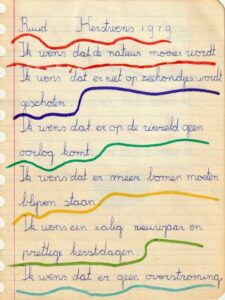 Ruud Kerstwens 1979
Ik wens dat de natuur mooier wordt
Ik wens dat er niet op zeehondjes wordt
geschoten
Ik wens dat er op de wereld geen
oorlog komt
Ik wens dat er meer bomen moeten
blijven staan
Ik wens een zalig nieuwjaar en
prettige kerstdagen.
Ik wens dat er geen overstroming